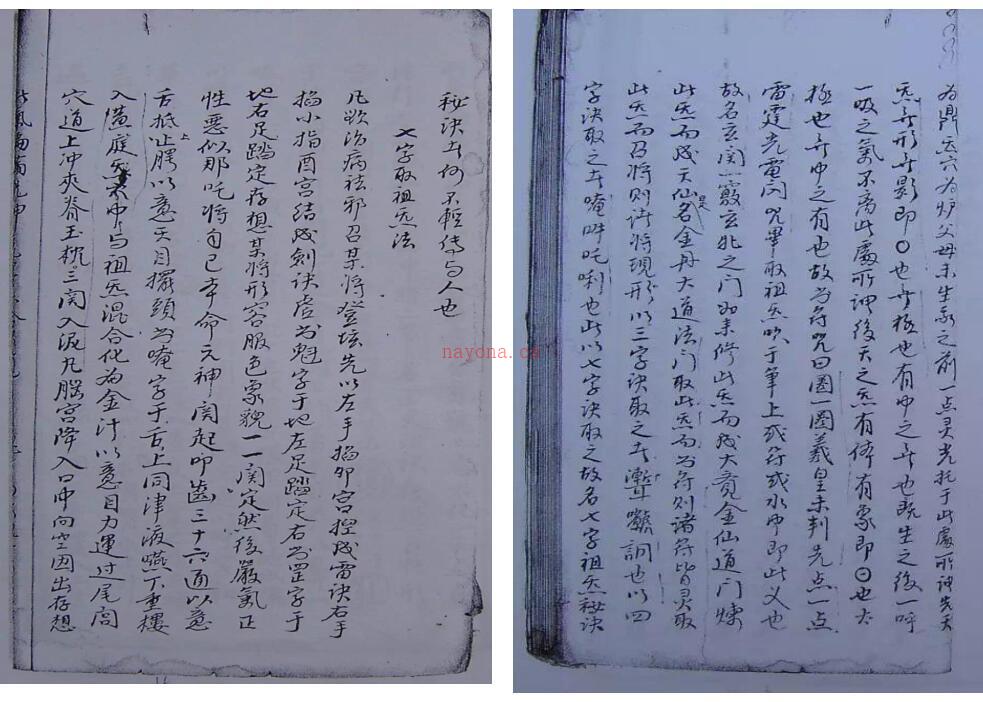 为鼎炁穴为炉父母未生我之前一点灵光托于此處所謂先天
炁无形无影即〇也无極也有中之无也既生之後一呼
一吸之氣不离此處所謂後天之炁有体有象即⊙也太
極也无中之有也故书符咒曰圈一圈羲皇未判先点一点
雷霆先電闪咒畢取祖炁吹于筆上或符或水中即此义也
故名玄関一竅玄牝之门如来修此炁而成大竟金仙道门煉
此炁而成天仙是名金丹大道法门取此炁而书符則诸符皆灵取
此炁而召将則诸将現形以三字诀取之者也以四
字诀取之者唵吽吒唎也此以七字诀取之故名七字祖炁秘诀
秘诀不輕传与人也
七字取祖炁法
凡欲治病祛邪召某将登坛先以左手掐卯宫捏成雷诀右手
掐小指酉宫结成剑诀虚书魁字于地左足踏定右书罡字于
地右足踏定存想某将形容服色象貌一一関定然後嚴氣正
性惡似那吒将自己本命元神関起叩齒三十六通以意
舌抵上腭以意天目擺頭书唵字于舌上同津液嚥下重樓
入黄庭炁穴中与祖炁混合化为金汁以意目力運过尾闾
穴道上冲夾脊玉枕三関入泥丸腦宫降入口中向空因出存想
nayona.cn